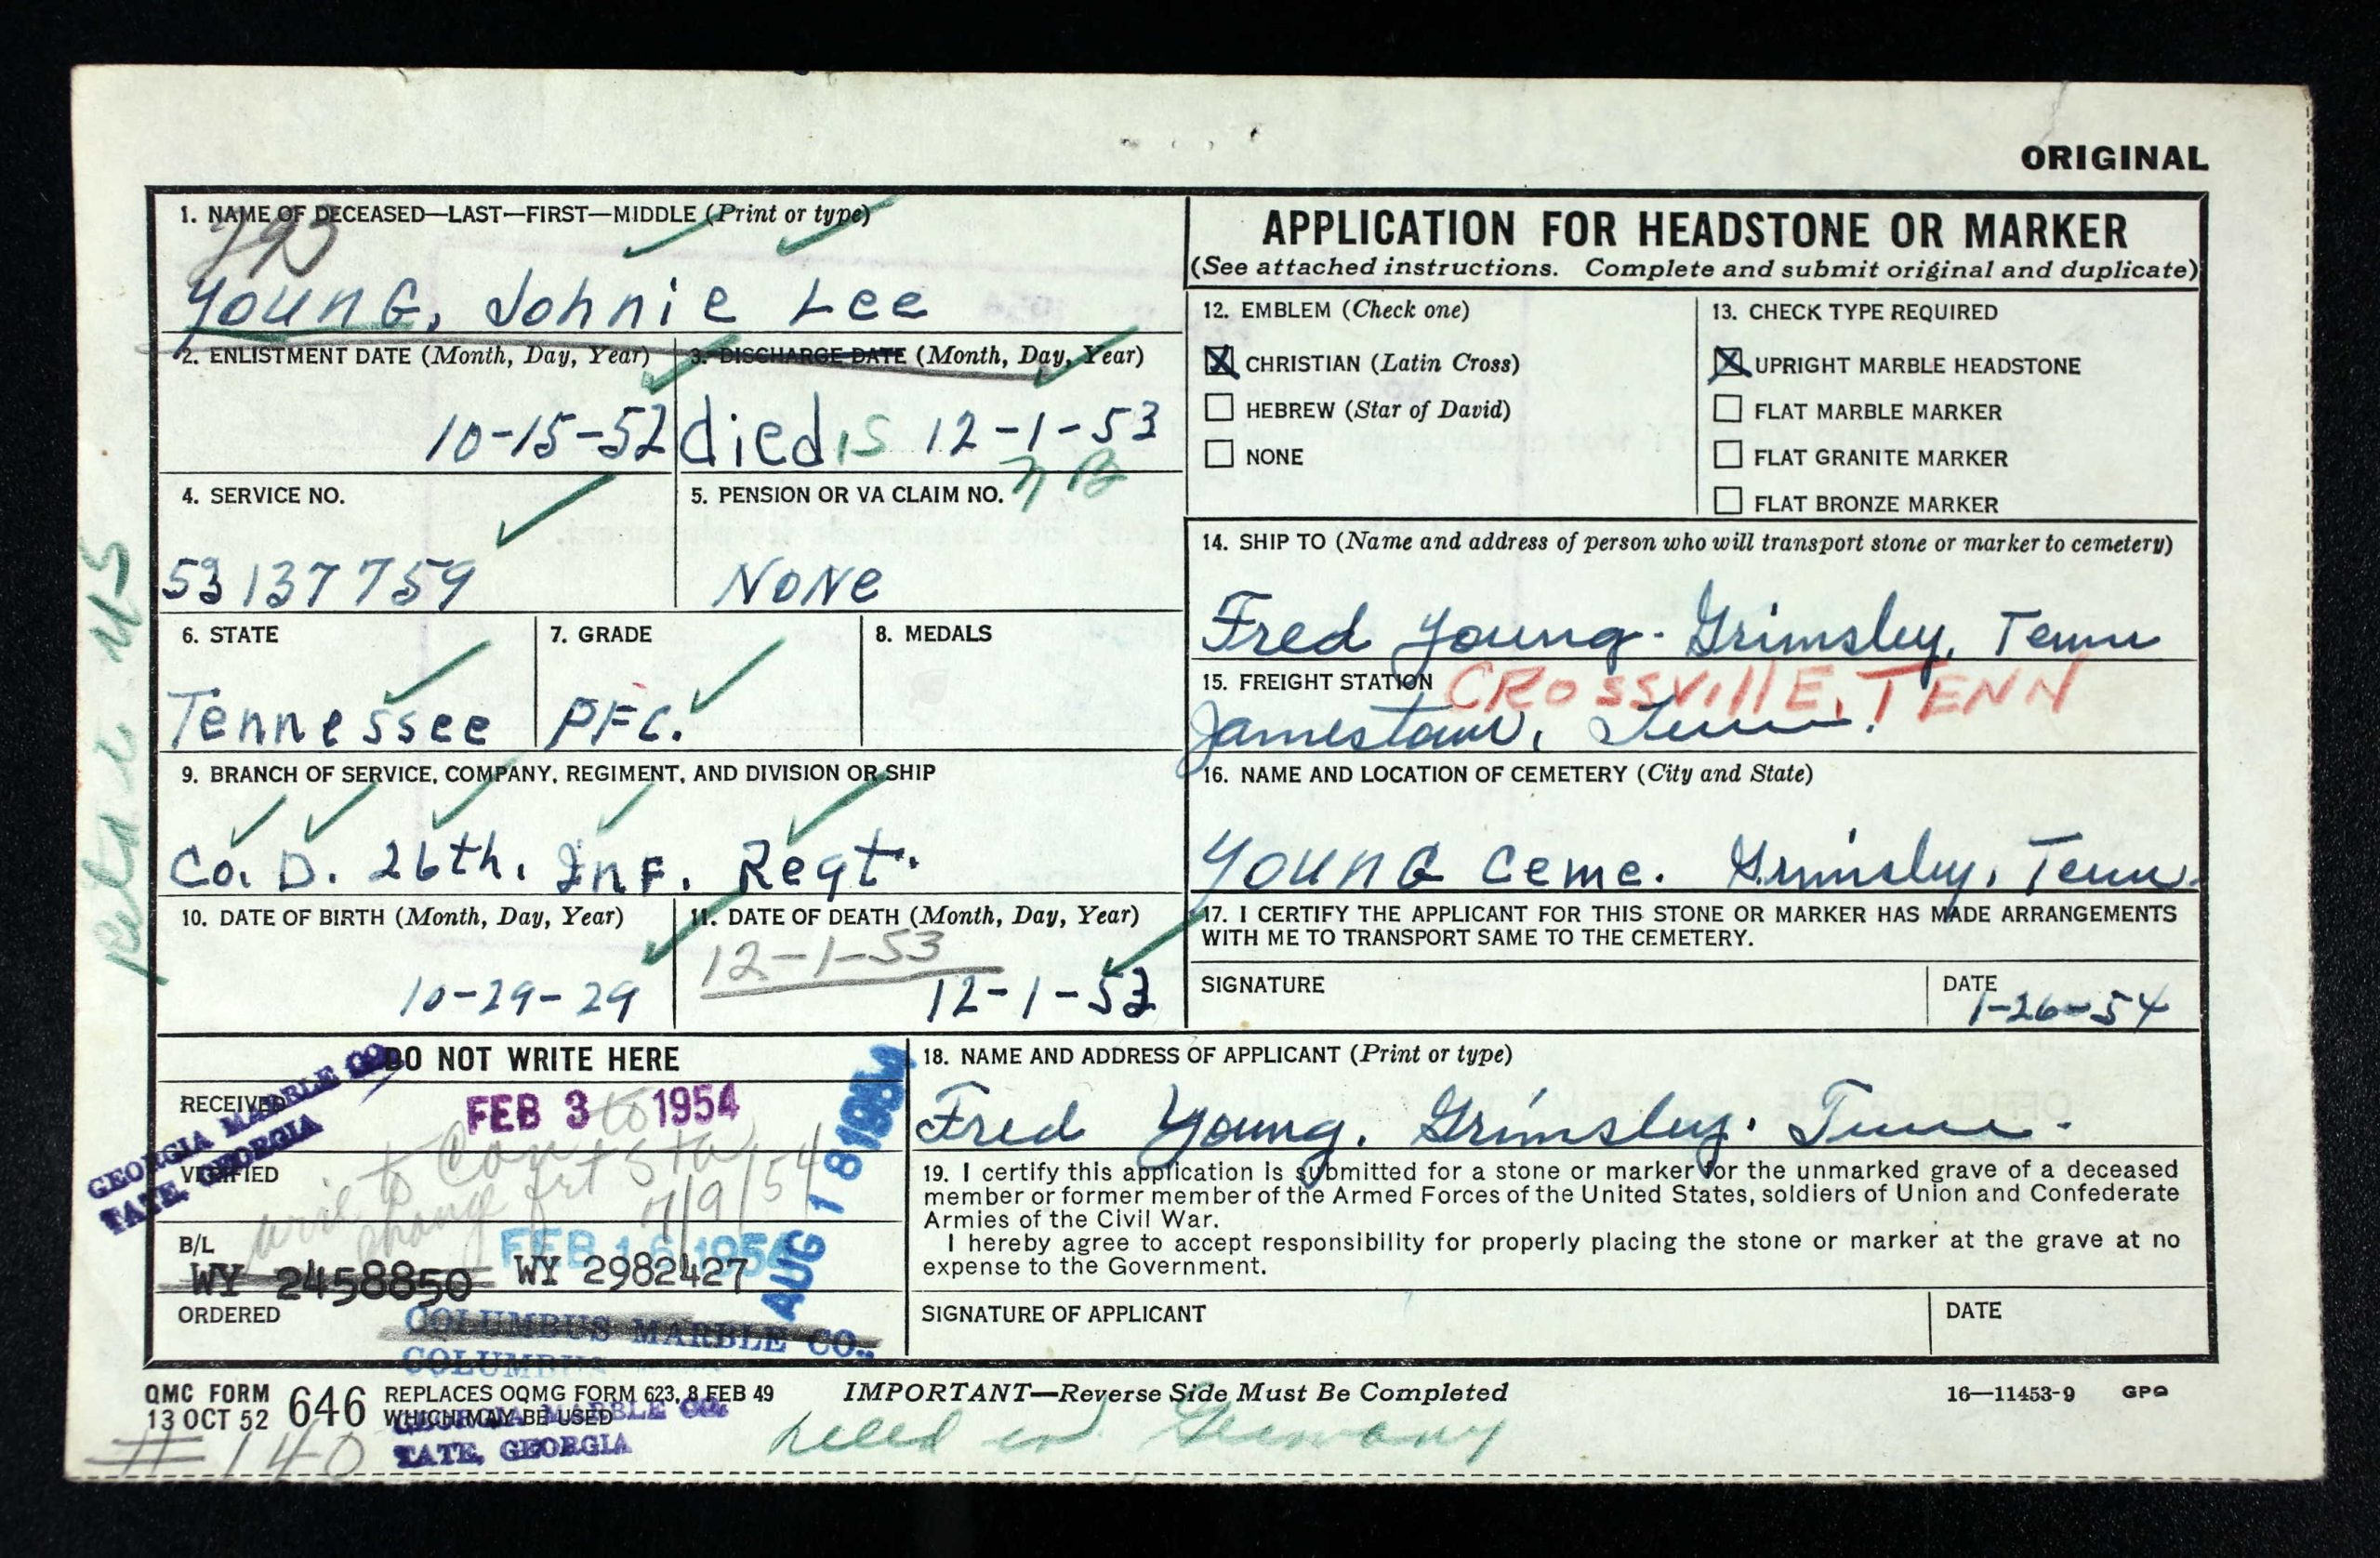 ORIGINAL
1. NAME OF DECEASED—LAST—FIRST—MIDDLE (Print or type)
YounG, Johnie Lee
2. ENLISTMENT DATE (Month, Day, Year)
10-15-52
3. DISCHARGE DATE (Month, Day, Year)
died 12-1-53
4. SERVICE NO.
53137759
5. PENSION OR VA CLAIM NO.
NoNe
6. STATE
Tennessee
7. GRADE
PFC.
8. MEDALS
9. BRANCH OF SERVICE, COMPANY, REGIMENT, AND DIVISION OR SHIP
Co. D. 26th. InF. Regt.
10. DATE OF BIRTH (Month, Day, Year)
10-29-29
11. DATE OF DEATH (Month, Day, Year)
12-1-53
12-1-53
APPLICATION FOR HEADSTONE OR MARKER
(See attached instructions. Complete and submit original and duplicate)
12. EMBLEM (Check one)
CHRISTIAN (Latin Cross)
HEBREW (Star of David)
NONE
13. CHECK TYPE REQUIRED
UPRIGHT MARBLE HEADSTONE
FLAT MARBLE MARKER
FLAT GRANITE MARKER
FLAT BRONZE MARKER
14. SHIP TO (Name and address of person who will transport stone or marker to cemetery)
Fred Young. Grimsley, Tenn
15. FREIGHT STATION
CROSSVILLE, TENN
Jamestown, Tenn.
16. NAME AND LOCATION OF CEMETERY (City and State)
YounG Ceme. Grimsley, Tenn.
17. I CERTIFY THE APPLICANT FOR THIS STONE OR MARKER HAS MADE ARRANGEMENTS
WITH ME TO TRANSPORT SAME TO THE CEMETERY.
SIGNATURE
DATE
1-26-54
DO NOT WRITE HERE
RECEIVED
FEB 3 1954
GEORGIA MARBLE CO.
TATE, GEORGIA
VERIFIED
7/9/54
AUG 18 1954
B/L
FEB 16 1954
WY 2458850 WY 2982427
ORDERED
COLUMBUS MARBLE CO.,
COLUMBUS
18. NAME AND ADDRESS OF APPLICANT (Print or type)
Fred Young. Grimsley. Tenn.
19. I certify this application is submitted for a stone or marker for the unmarked grave of a deceased
member or former member of the Armed Forces of the United States, soldiers of Union and Confederate
Armies of the Civil War.
I hereby agree to accept responsibility for properly placing the stone or marker at the grave at no
expense to the Government.
SIGNATURE OF APPLICANT
DATE
QMC FORM 646
13 OCT 52
REPLACES OQMG FORM 623, 8 FEB 49
WHICH MAY BE USED
GEORGIA MARBLE CO.
TATE, GEORGIA
IMPORTANT—Reverse Side Must Be Completed
16—11453-9 GPO
# 140
in Germany